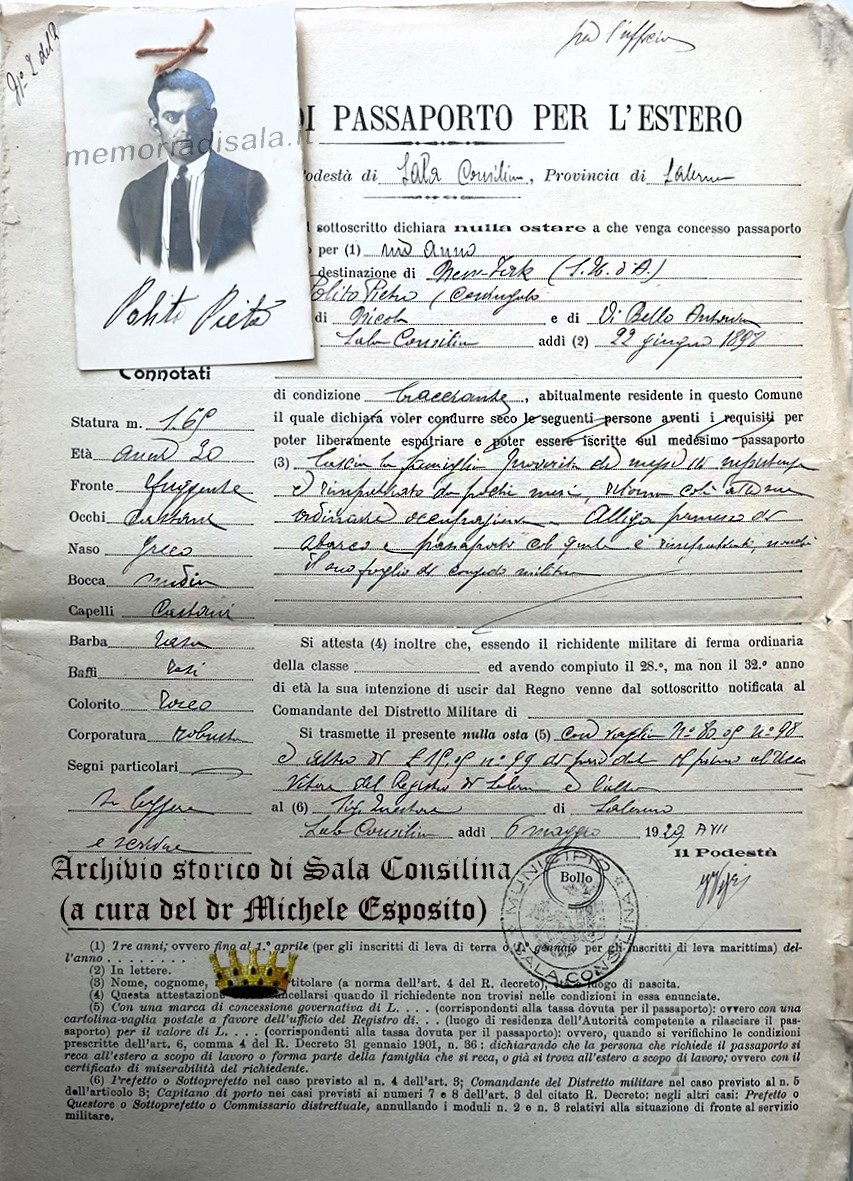 per l'ufficio
N. 2 del
memoriadisala.it
DI PASSAPORTO PER L'ESTERO
Podestà di Sala Consilina, Provincia di Salerno
l sottoscritto dichiara nulla ostare a che venga concesso passaporto
o per (1) un anno
destinazione di New-York (S. U. d'A.)
Polito Pietro, coniugato
di Nicola e di Di Bello Antonia
Sala Consilina addì (2) 22 giugno 1898
Polito Pietro
Connotati
di condizione bracciante, abitualmente residente in questo Comune
il quale dichiara voler condurre seco le seguenti persone aventi i requisiti per
poter liberamente espatriare e poter essere iscritte sul medesimo passaporto
(3) Lascia la famiglia provvista di mezzi di
e rimpatriato da pochi mesi, ritorna colà alle sue
ordinarie occupazioni. Allega permesso di
sbarco e passaporto col quale è rimpatriato, nonché
il suo foglio di congedo militare
Statura m. 1.69
Età anni 30
Fronte sfuggente
Occhi castani
Naso Greco
Bocca media
Capelli Castani
Barba rasa
Baffi rasi
Colorito roseo
Corporatura robusta
Segni particolari
e scrivere
Si attesta (4) inoltre che, essendo il richidente militare di ferma ordinaria
della classe ed avendo compiuto il 28.º, ma non il 32.º anno
di età la sua intenzione di uscir dal Regno venne dal sottoscritto notificata al
Comandante del Distretto Militare di
Si trasmette il presente nulla osta (5) con vaglia
e altro di
del Registro di Salerno e l'altro
al (6) Sig. Questore di Salerno
Sala Consilina addì 6 maggio 1929 A VII
Il Podestà
Bollo
MUNICIPIO
SALA CONSILINA
Archivio storico di Sala Consilina
(a cura del dr Michele Esposito)
(1) Tre anni; ovvero fino al 1.º aprile (per gli inscritti di leva di terra o 1.º gennaio per gli inscritti di leva marittima) del-
l'anno . . . . . . . . .
(2) In lettere.
(3) Nome, cognome, titolare (a norma dell'art. 4 del R. decreto), luogo di nascita.
(4) Questa attestazione cancellarsi quando il richiedente non trovisi nelle condizioni in essa enunciate.
(5) Con una marca di concessione governativa di L. . . . (corrispondenti alla tassa dovuta per il passaporto): ovvero con una
cartolina-vaglia postale a favore dell'ufficio del Registro di. . . (luogo di residenza dell'Autorità competente a rilasciare il pas-
saporto) per il valore di L. . . . (corrispondenti alla tassa dovuta per il passaporto); ovvero, quando si verifichino le condizioni
prescritte dell'art. 6, comma 4 del R. Decreto 31 gennaio 1901, n. 36 : dichiarando che la persona che richiede il passaporto si
reca all'estero a scopo di lavoro o forma parte della famiglia che si reca, o già si trova all'estero a scopo di lavoro; ovvero con il
certificato di miserabilità del richiedente.
(6) Prefetto o Sottoprefetto nel caso previsto al n. 4 dell'art. 3; Comandante del Distretto militare nel caso previsto al n. 5
dell'articolo 3; Capitano di porto nei casi previsti ai numeri 7 e 8 dell'art. 3 del citato R. Decreto; negli altri casi: Prefetto o
Questore o Sottoprefetto o Commissario distrettuale, annullando i moduli n. 2 e n. 3 relativi alla situazione di fronte al servizio
militare.